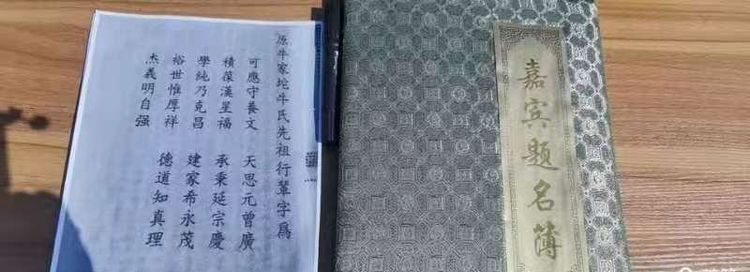 原牛家坨牛氏先祖行輩字爲
可應守養文　天思元曾廣
積葆漢星福　承秉延宗慶
學純乃克昌　建家希永茂
裕世惟厚祥　德道知真理
杰義明自强
嘉宾题名簿